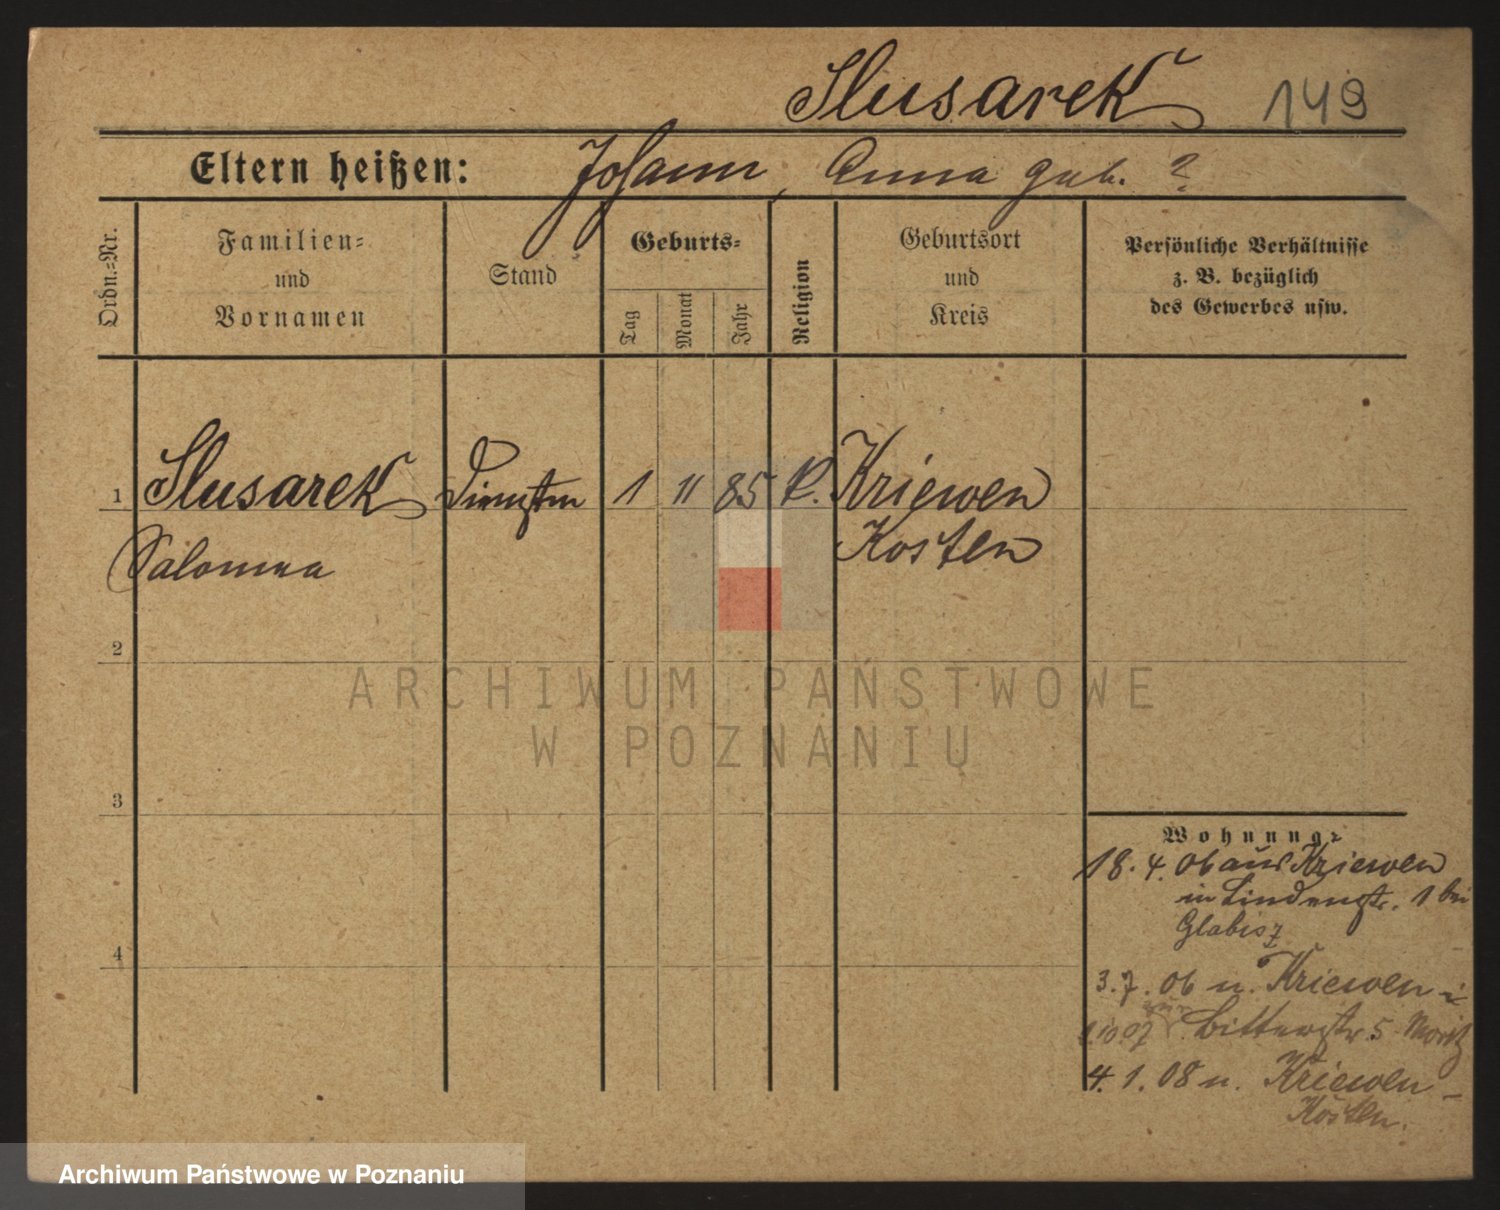 Slusarek 149
Eltern heißen: Johann, Anna geb. ?
Ordn.=Nr.
Familien=
und
Vornamen
Stand
Geburts=
Tag
Monat
Jahr
Religion
Geburtsort
und
Kreis
Persönliche Verhältnisse
z. B. bezüglich
des Gewerbes usw.
1 Slusarek 1 11 85 K. Kriewen
Salomea Kosten
2
3
4
Wohnung:
18. 4. 06 aus Kriewen
in Lindenstr. 1 bei
Glabisz
3. 7. 06 n. Kriewen
10 07 Bitterstr. 5 Moritz
4. 1. 08 n. Kriewen -
Kosten.
ARCHIWUM PAŃSTWOWE
W POZNANIU
Archiwum Państwowe w Poznaniu